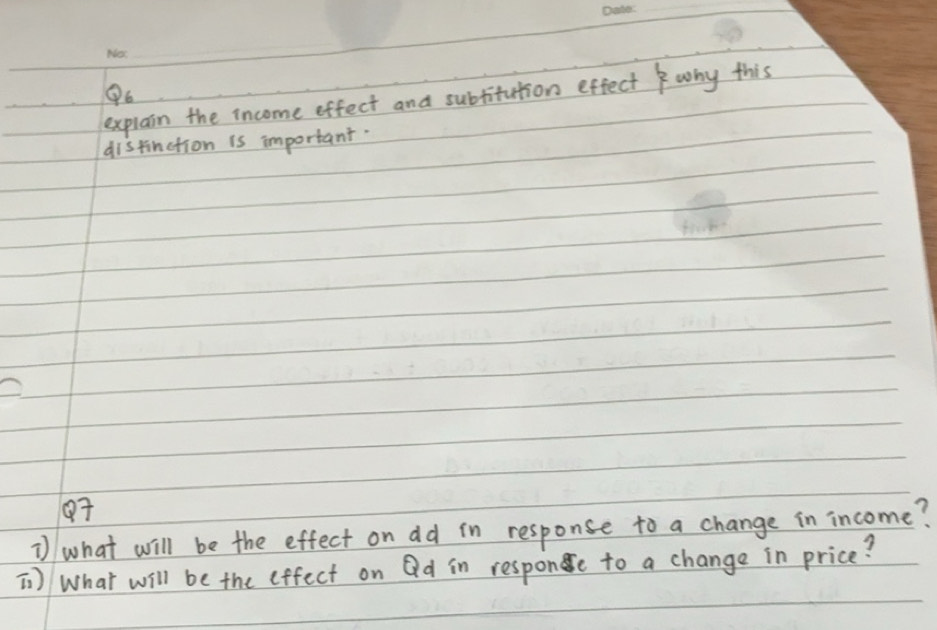 Date:
No:
Q6
explain the income effect and subtitution effect & why this
distinction is important.
Q7
i) what will be the effect on dd in response to a change in income?
ii) What will be the effect on Qd in response to a change in price?